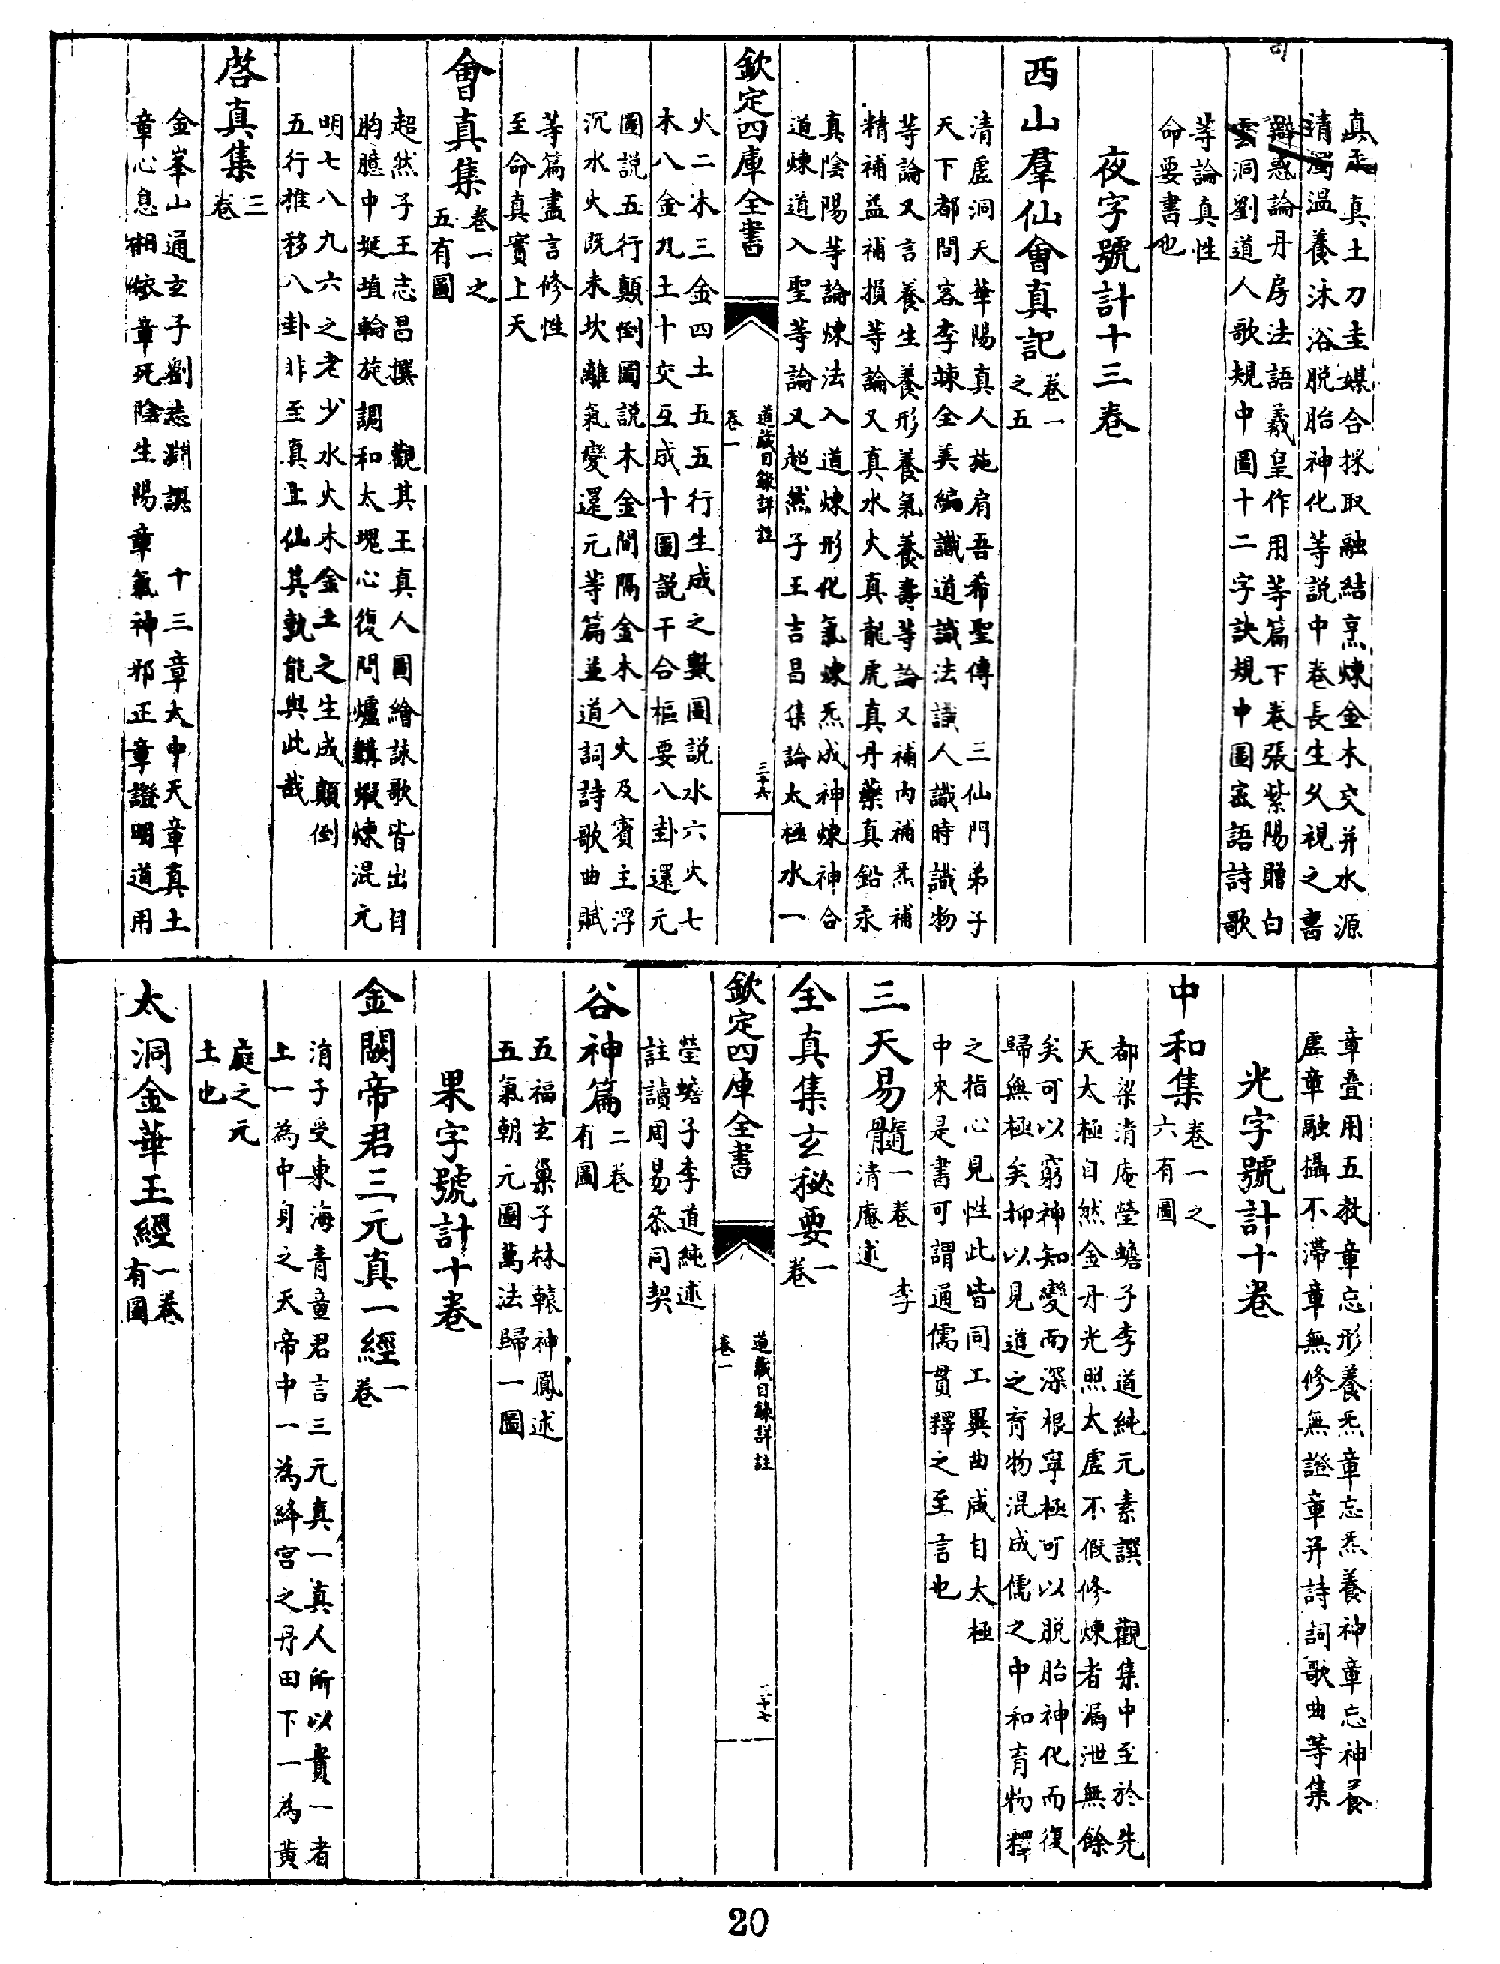 真炁真土刀圭媒合採取融結烹煉金木交并水源
清濁溫養沐浴脫胎神化等説中卷長生久視之書
辯惑論丹房法語羲皇作用等篇下卷張紫陽贈白
雲洞劉道人歌規中圖十二字訣規中圖密語詩歌
等論真性
命要書也
夜字號計十三卷
西山羣仙會真記 卷一
之五
清虛洞天華陽真人施肩吾希聖傳 三仙門弟子
天下都間客李竦全美編識道識法識人識時識物
等論又言養生養形養氣養壽等論又補内補炁補
精補益補損等論又真水火真龍虎真丹藥真鉛汞
真陰陽等論煉法入道煉形化氣煉炁成神煉神合
道煉道入聖等論又超然子王吉昌集論太極水一
欽定四庫全書
道藏目錄詳註
卷一
三十六
火二木三金四土五五行生成之數圖説水六火七
木八金九土十交互成十圖説干合樞要八卦還元
圖説五行顛倒圖説木金間隔金木入火及賓主浮
沉水火既未坎離氣變還元等篇並道詞詩歌曲賦
等篇盡言修性
至命真實上天
會真集 卷一之
五有圖
超然子王志昌撰 觀其王真人圖繪詠歌皆出自
胸臆中埏埴輪旋調和太塊心復問爐韝煅煉混元
明七八九六之老少水火木金土之生成顛倒
五行推移八卦非至真上仙其孰能與此哉
啓真集 三
卷
金峯山通玄子劉志淵譔 十三章太中天章真土
章心息相依章死陰生陽章氣神邪正章證明道用
章叠用五教章忘形養炁章忘炁養神章忘神養
虛章融攝不滯章無修無證章并詩詞歌曲等集
光字號計十卷
中和集 卷一之
六有圖
都梁清庵瑩蟾子李道純元素譔 觀集中至於先
天太極自然金丹光照太虛不假修煉者漏泄無餘
矣可以窮神知變而深根寧極可以脫胎神化而復
歸無極矣抑以見道之育物混成儒之中和育物釋
之指心見性此皆同工異曲咸自太極
中來是書可謂通儒貫釋之至言也
三天易髓 一卷 李
清庵述
全真集玄秘要 一
卷
欽定四庫全書
道藏目錄詳註
卷一
三十七
瑩蟾子李道純述
註讀周易叅同契
谷神篇 二卷
有圖
五福玄巢子林轅神鳳述
五氣朝元圖萬法歸一圖
果字號計十卷
金闕帝君三元真一經 一
卷
涓子受東海青童君言三元真一真人所以貴一者
上一為中身之天帝中一為絳宮之丹田下一為黄
庭之元
土也
太洞金華玉經 一卷
有圖
20